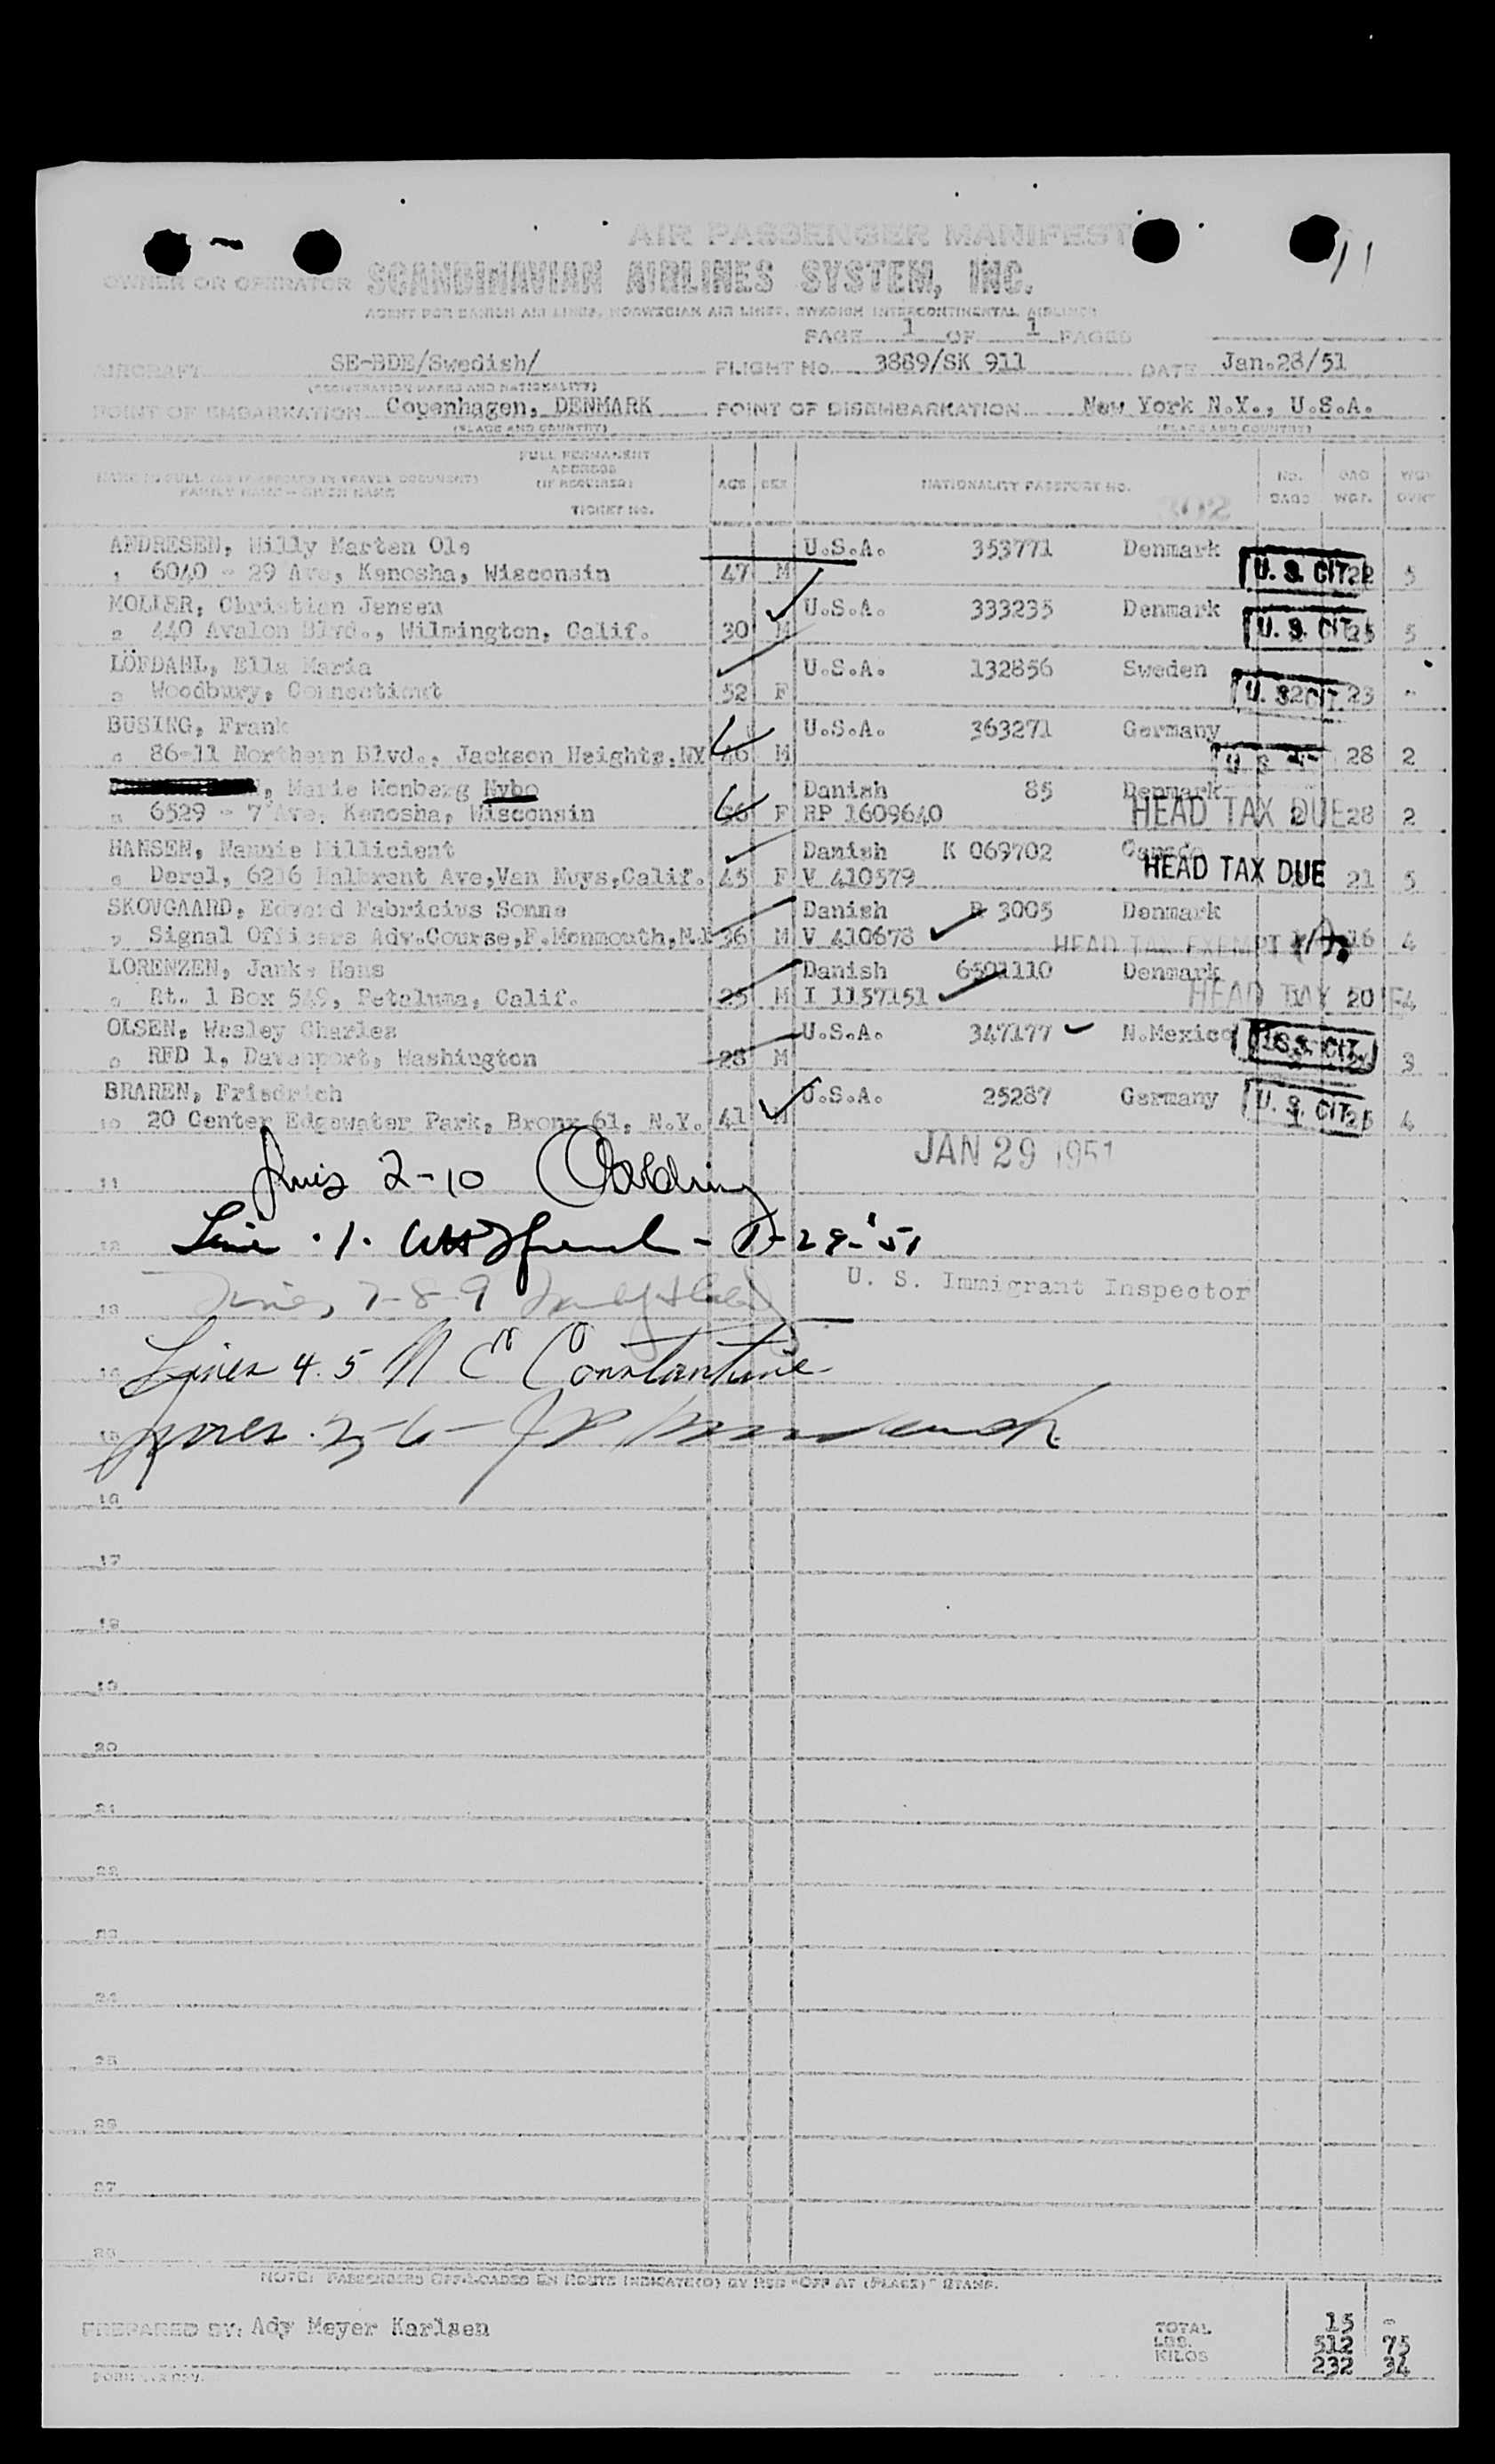 AIR PASSENGER MANIFEST
OWNER OR OPERATOR SCANDINAVIAN AIRLINES SYSTEM, INC.
AGENT FOR DANISH AIR LINES, NORWEGIAN AIR LINES, SWEDISH INTERCONTINENTAL AIRLINES
PAGE 1 OF 1 PAGES
AIRCRAFT SE-BDE/Swedish/ FLIGHT No. 3889/SK 911 DATE Jan.28/51
(REGISTRATION MARKS AND NATIONALITY)
POINT OF EMBARKATION Copenhagen, DENMARK POINT OF DISEMBARKATION New York N.Y., U.S.A.
(PLACE AND COUNTRY) (PLACE AND COUNTRY)
FULL PERMANENT
ADDRESS
NAME IN FULL (AS IT APPEARS IN TRAVEL DOCUMENT) (IF REQUIRED) AGE SEX NATIONALITY PASSPORT NO. NO. BAG WGT
FAMILY NAME - GIVEN NAME BAGS WGT.
TICKET NO.
ANDRESEN, Willy Marten Ole U.S.A. 353771 Denmark
1 6040 - 29 Ave, Kenosha, Wisconsin 47 M U. S. CIT. 22 5
MOLLER, Christian Jensen U.S.A. 333235 Denmark
2 440 Avalon Blvd., Wilmington, Calif. 30 M U. S. CIT. 25 5
LÖFDAHL, Ella Maria U.S.A. 132856 Sweden
3 Woodbury, Connecticut 52 F U. S. CIT. 2 23 -
BUSING, Frank U.S.A. 363271 Germany
4 86-11 Northern Blvd., Jackson Heights, NY 46 M U. S. 28 2
, Marie Monberg Nybo Danish 85 Denmark
5 6529 - 7 Ave, Kenosha, Wisconsin 36 F RP 1609640 HEAD TAX DUE 28 2
HANSEN, Nannie Millicient Danish K 069702 Canada
6 Deral, 6216 Halbrent Ave,Van Nuys,Calif. 45 F V 410579 HEAD TAX DUE 21 5
SKOVGAARD, Edvard Fabricius Somne Danish R 3005 Denmark
7 Signal Officers Adv.Course,F.Monmouth,N.J 36 M V 410678 HEAD TAX EXEMPT 16 4
LORENZEN, Janks Hans Danish 6501110 Denmark
8 Rt. 1 Box 549, Petaluma, Calif. 25 M I 1157151 HEAD TAX DUE 20 4
OLSEN, Wesley Charles U.S.A. 347177 N.Mexico
9 RFD 1, Davenport, Washington 28 M U. S. CIT. 3
BRAREN, Friedrich U.S.A. 25287 Germany
10 20 Center Edgewater Park, Bronx 61, N.Y. 41 M U. S. CIT. 1 25 4
JAN 29 1951
11 Lines 2-10
12 Line 1. 1-29-'51
U. S. Immigrant Inspector
13 Lines 7-8-9
14 Lines 4.5 N E Constantine
15 Lines
16
17
18
19
20
21
22
23
24
25
26
27
28
NOTE: PASSENGERS OFF-LOADED EN ROUTE INDICATE(D) BY RED "OFF AT (PLACE)" STAMP.
PREPARED BY: Ady Meyer Karlsen
TOTAL 15 -
LBS. 512 75
KILOS 232 34